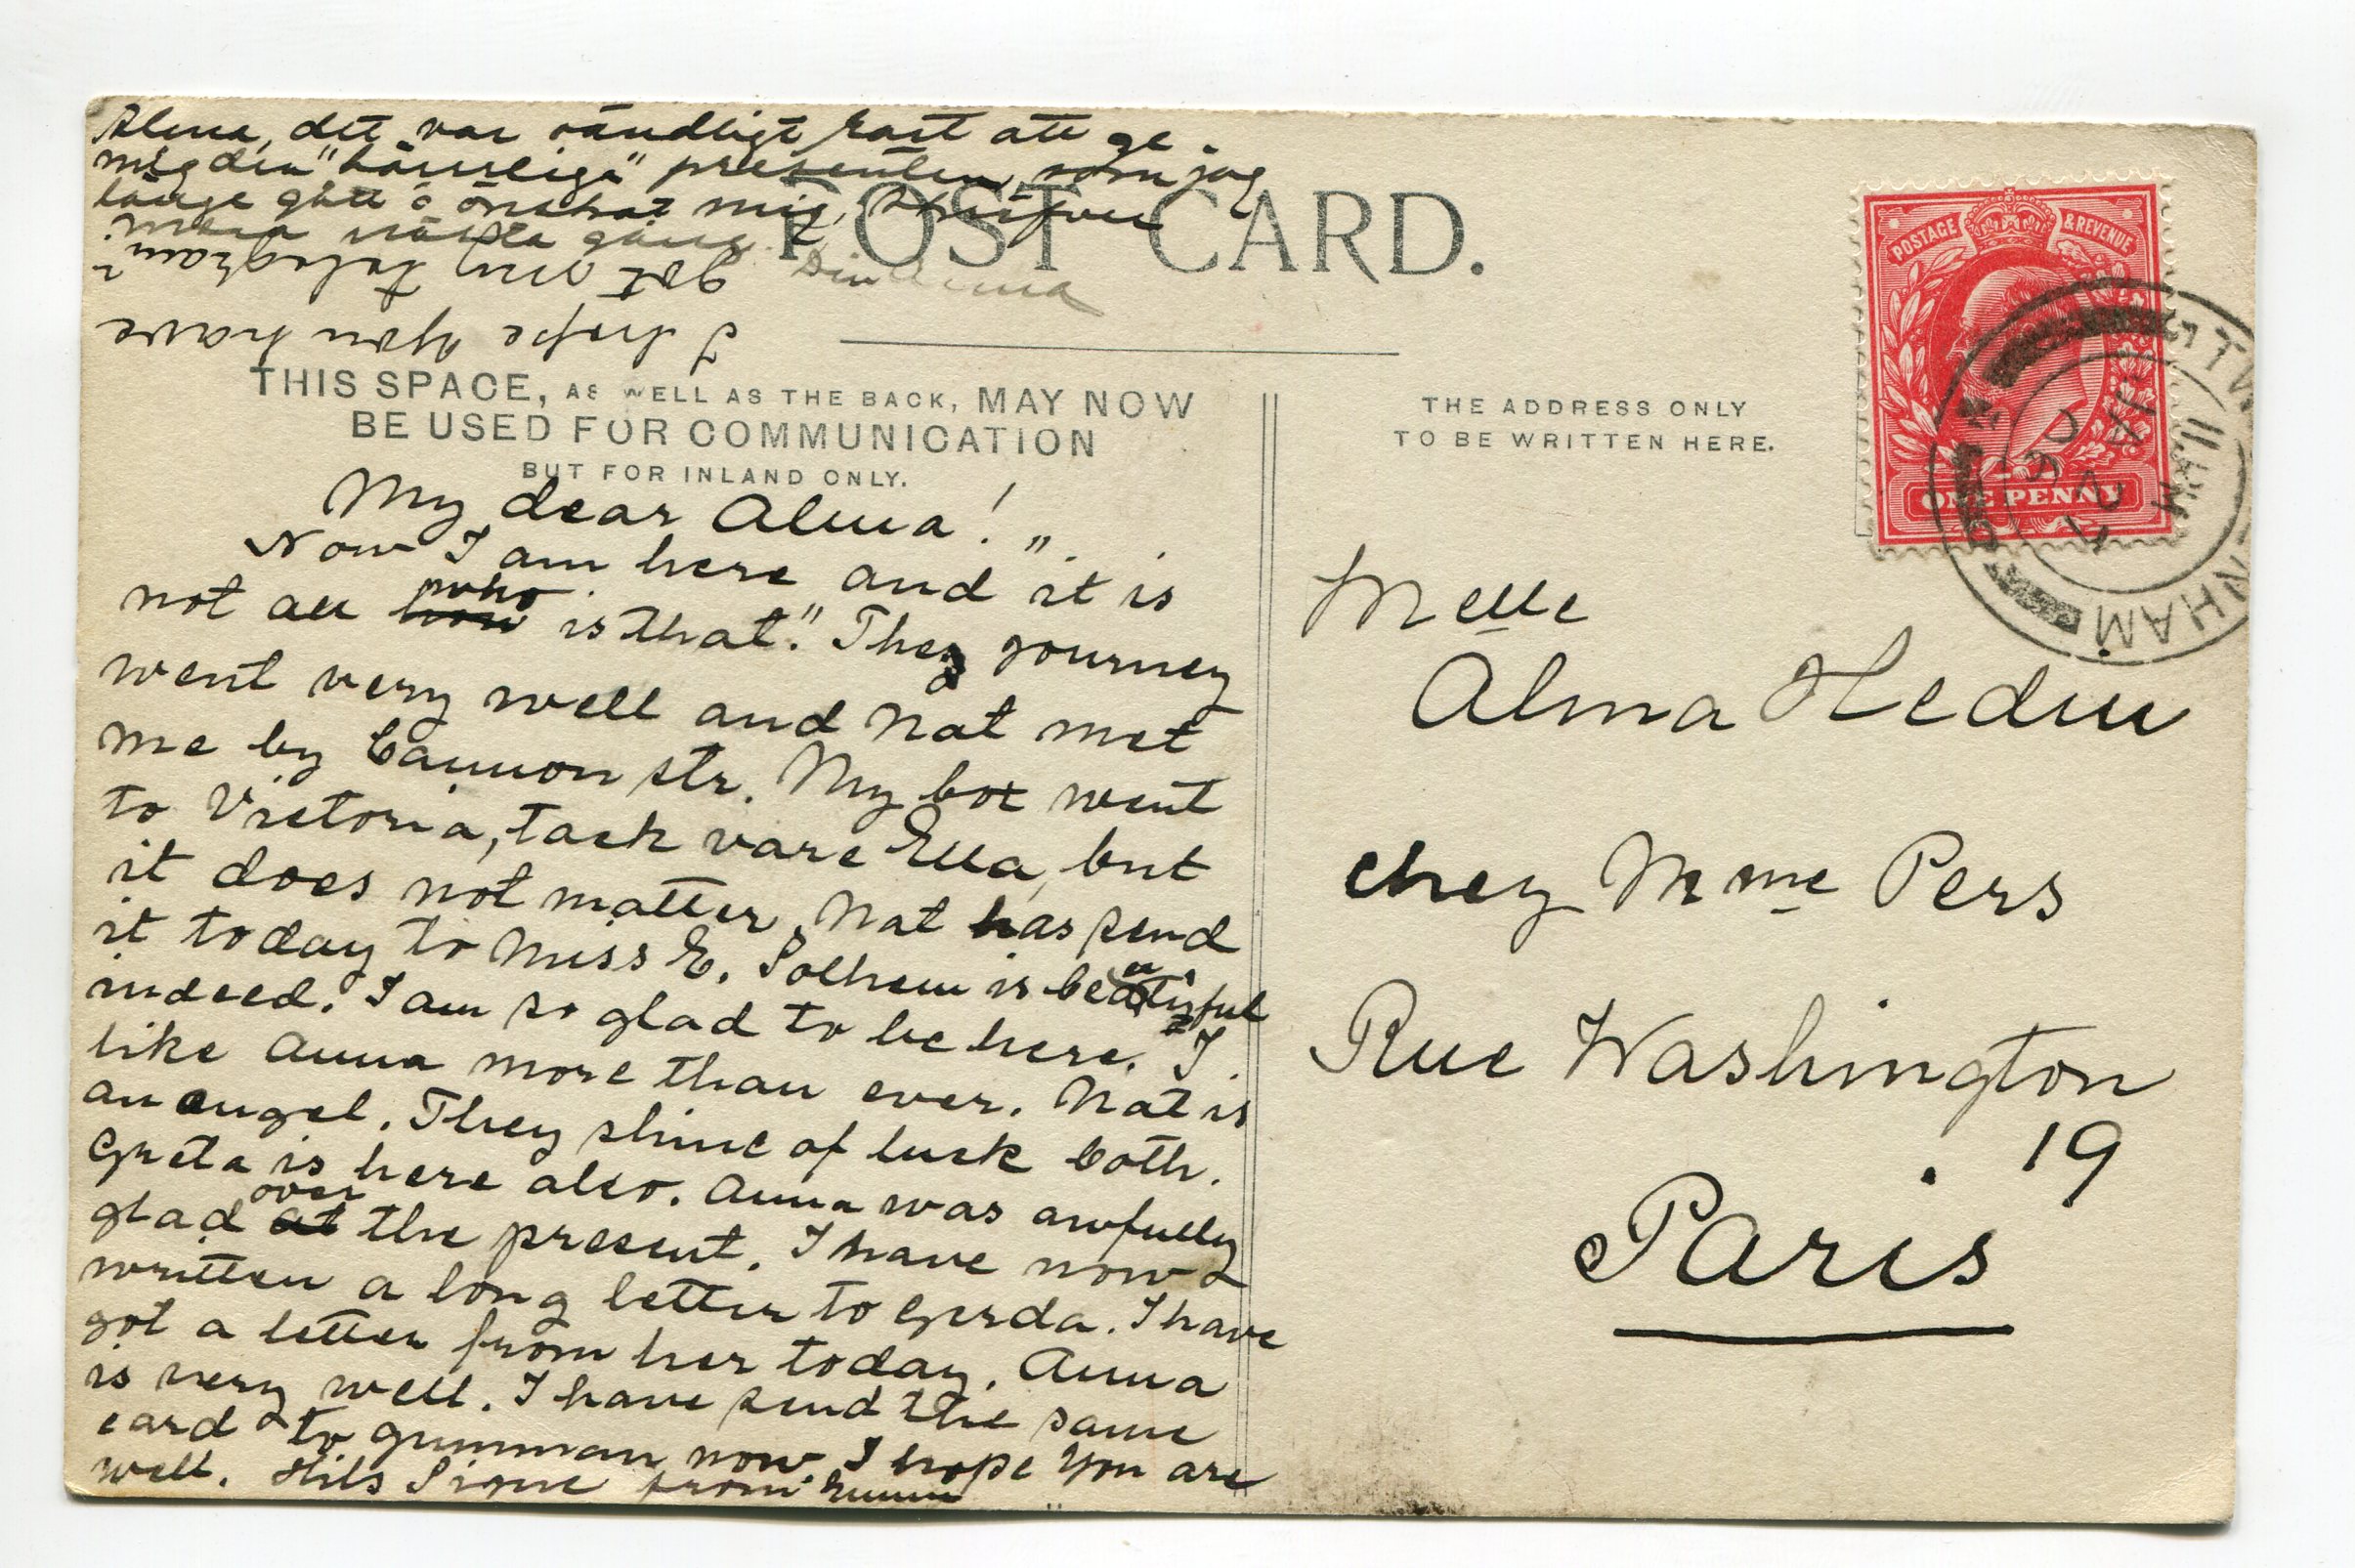 Alma, det var oändligt rart att ge
mig din "härrliga" presenten, som jag
länge gått ò önskat mig. Skrifver
mera nästa gång. Din Anna
I hope you have
got my telegram
POST CARD.
THIS SPACE, AS WELL AS THE BACK, MAY NOW
BE USED FOR COMMUNICATION
BUT FOR INLAND ONLY.
My dear Alma!
Now I am here and it is
not all how who is that." They journey
went very well and Nat met
me by Cannon str. My box went
to Victoria, tack vare Ella, but
it does not matter. Nat has send
it today to Miss E. Solhem is beautiful
indeed. I am so glad to be here. I
like Anna more than ever. Nat is
an engel. They shine of luck both.
Greta is here also. Anna was awfully
glad at over the present. I have now
written a long letter to Gerda. I have
got a letter from her today. Anna
is very well. I have send the same
card to gumman now I hope you are
well. Hils Signe from
THE ADDRESS ONLY
TO BE WRITTEN HERE.
POSTAGE & REVENUE
ONE PENNY
Melle
Alma Hedin
chez Mme Pers
Rue Washington
19
Paris